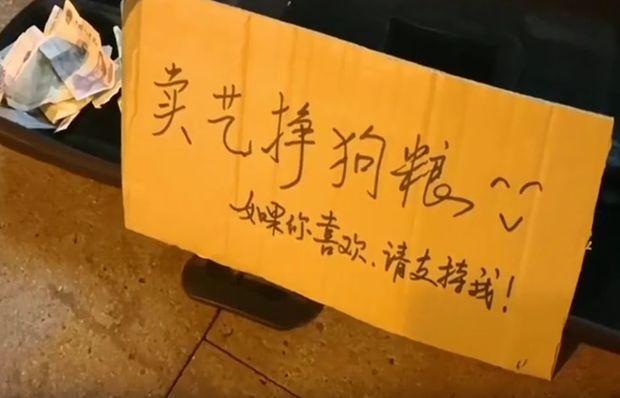 卖艺挣狗粮
如果你喜欢.请支持我!